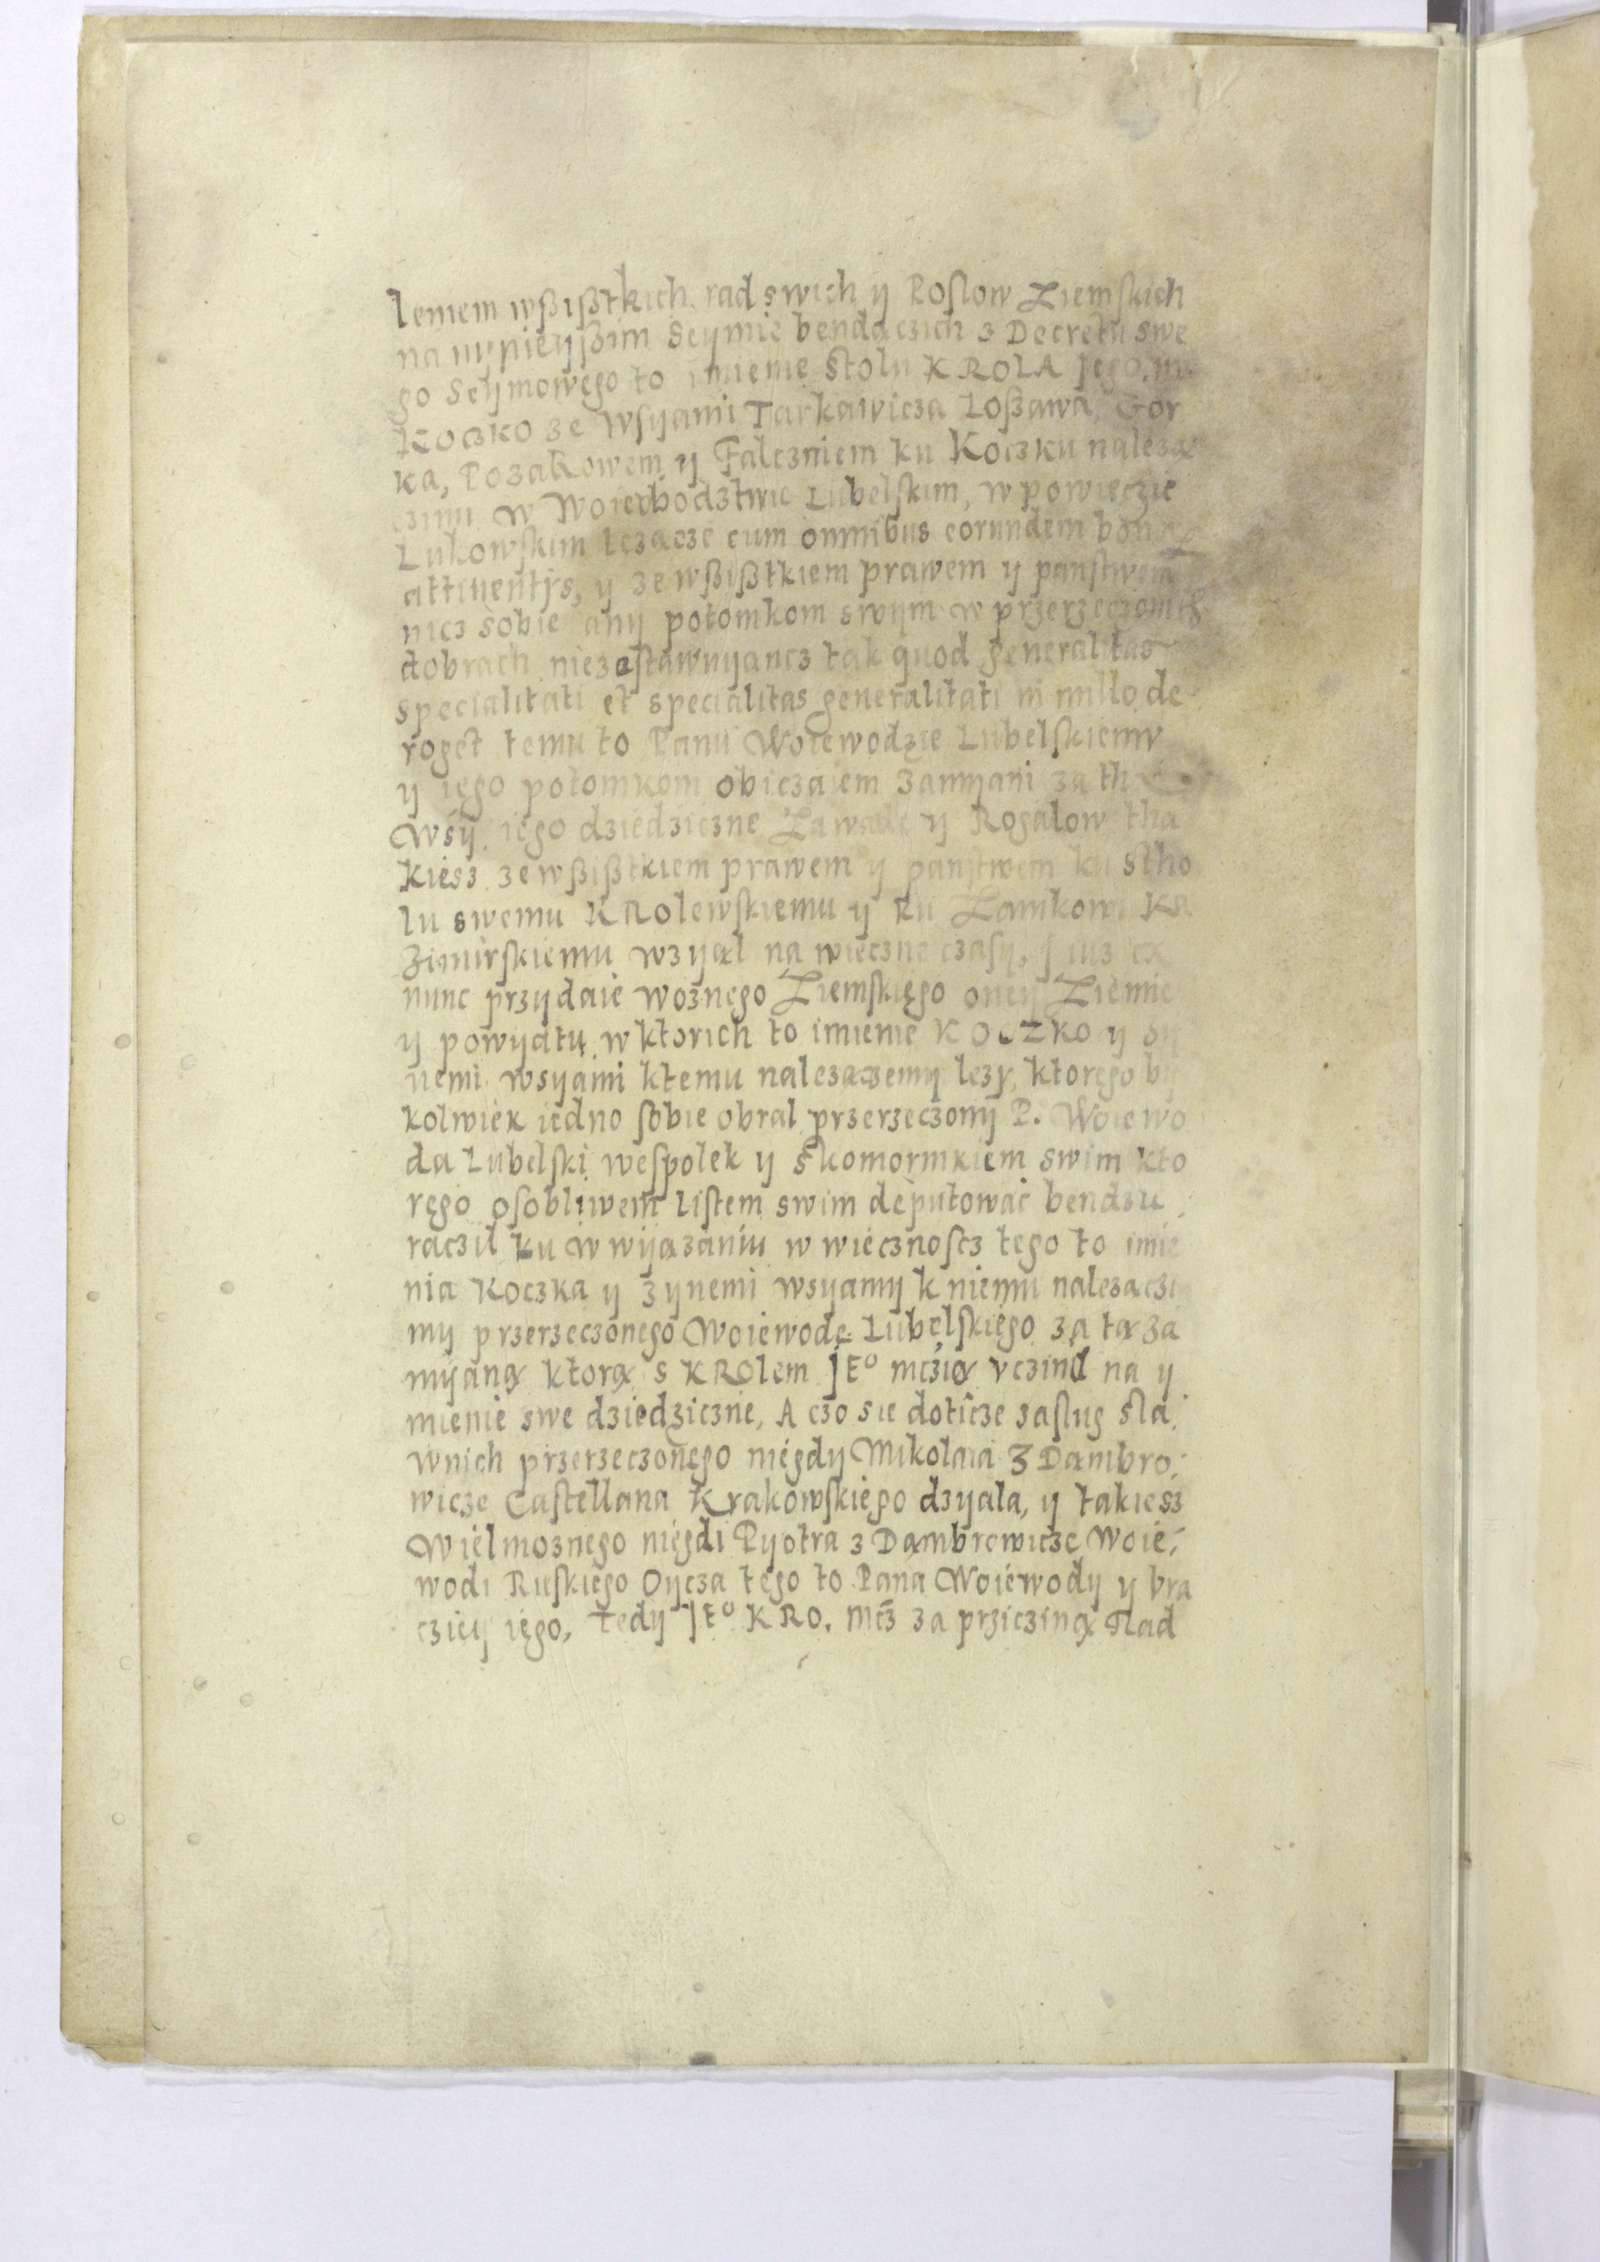 leniem wßißtkich rad swich y Poslow Ziemskich
na nynieyßim Seymie bendaczich z Decretu swe
go Seymowego to imienie stolu KROLA Jego.
Koczko ze wsyami Tarkawicza Loßawa, Gor
ka, Pozarowem y Falezniem ku Koczku należą
czimi w Woiewodztwie Lubelskim, w powieczie
Lukowskim lezacze cum omnibus eorundem
attinentijs, y ze wßißtkiem prawem y panstwem
nicz sobie any potomkom swym w przerzeczonich
dobrach niezostawuyancz tak quod generalitas
specialitati et specialitas generalitati in nullo de
roget temu to Panu Woiewodzie Lubelskiemv
y iego potomkom obiczaiem zamyani za
Wsy iego dziedziczne Zawade y Rogalow tha
kiesz ze wßißtkiem prawem y panstwem ku stho
lu swemu KRolewskiemu y ku Zamkowi Ka
zimirskiemu wzyął na wieczne czasy, J iusz ex
nunc przydaie woznego Ziemskiego oney Ziemie
y powyatu w ktorich to imienie KOCZKO y
nemi wsyami ktemu nalezaczemy lezy, ktorego by
kolwiek iedno sobie obral przerzeczony P. Woiewo
da Lubelski wespolek y s komornikiem swim kto
rego osobliwem listem swim deputowac bendzie
raczil ku wwyązaniu w wiecznoscz tego to imie
nia Koczka y zynemi wsyamy k niemu nalezaczi
my przerzeczonego Woiewode Lubelskiego za tą za
myaną ktorą s KROlem JEº mczią vczinil na y
mienie swe dziedziczne, A czo sie doticze zaslug sla,
wnich przerzeczonego niegdy Mikolaia Z Dambro,
wicze Castellana Krakowskiego dzyala, y takiesz
Wielmoznego niegdi Pyotra z Dąmbrowicze Woie,
wodi Ruskiego Oycza tego to Pana Woiewody y bra
cziey iego, tedy JEº KRO. Mcz za przicziną Rad